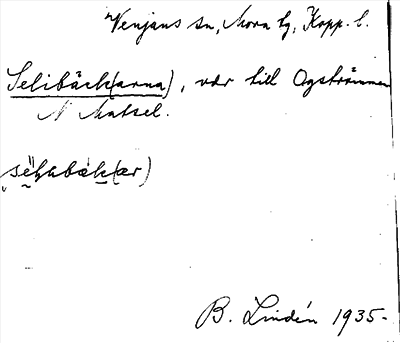 Venjans sn, Mora tg, Kopp. l.
Selibäck(arna), vdr till Ogströmmen
N Matsel.
B. Lindén 1935-